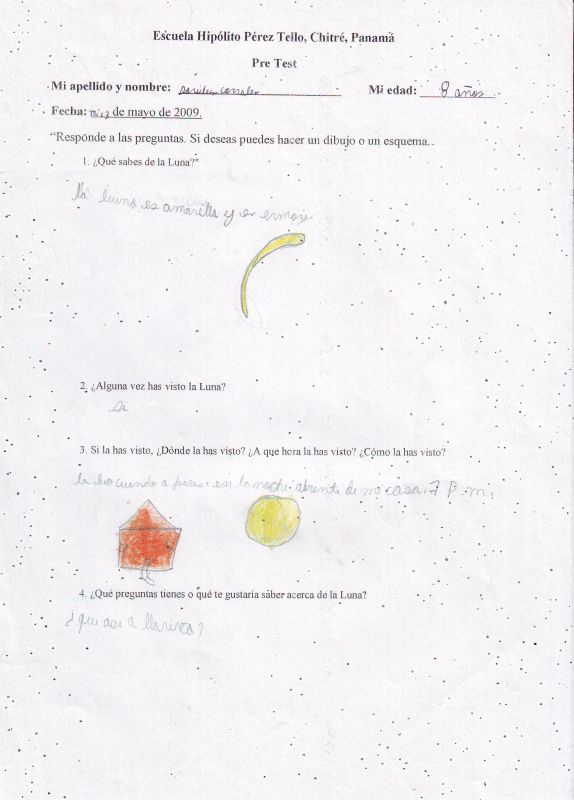 Escuela Hipólito Pérez Tello, Chitré, Panamá
Pre Test
Mi apellido y nombre: Mi edad: 8 años
Fecha: de mayo de 2009.
"Responde a las preguntas. Si deseas puedes hacer un dibujo o un esquema..
1. ¿Qué sabes de la Luna?"
la luna es amarilla y es ermosa
2. ¿Alguna vez has visto la Luna?
Si
3. Si la has visto, ¿Dónde la has visto? ¿A que hora la has visto? ¿Cómo la has visto?
la beo cuando en la noche de mi casa 7 p.m.
4. ¿Qué preguntas tienes o qué te gustaría saber acerca de la Luna?
¿que ase a